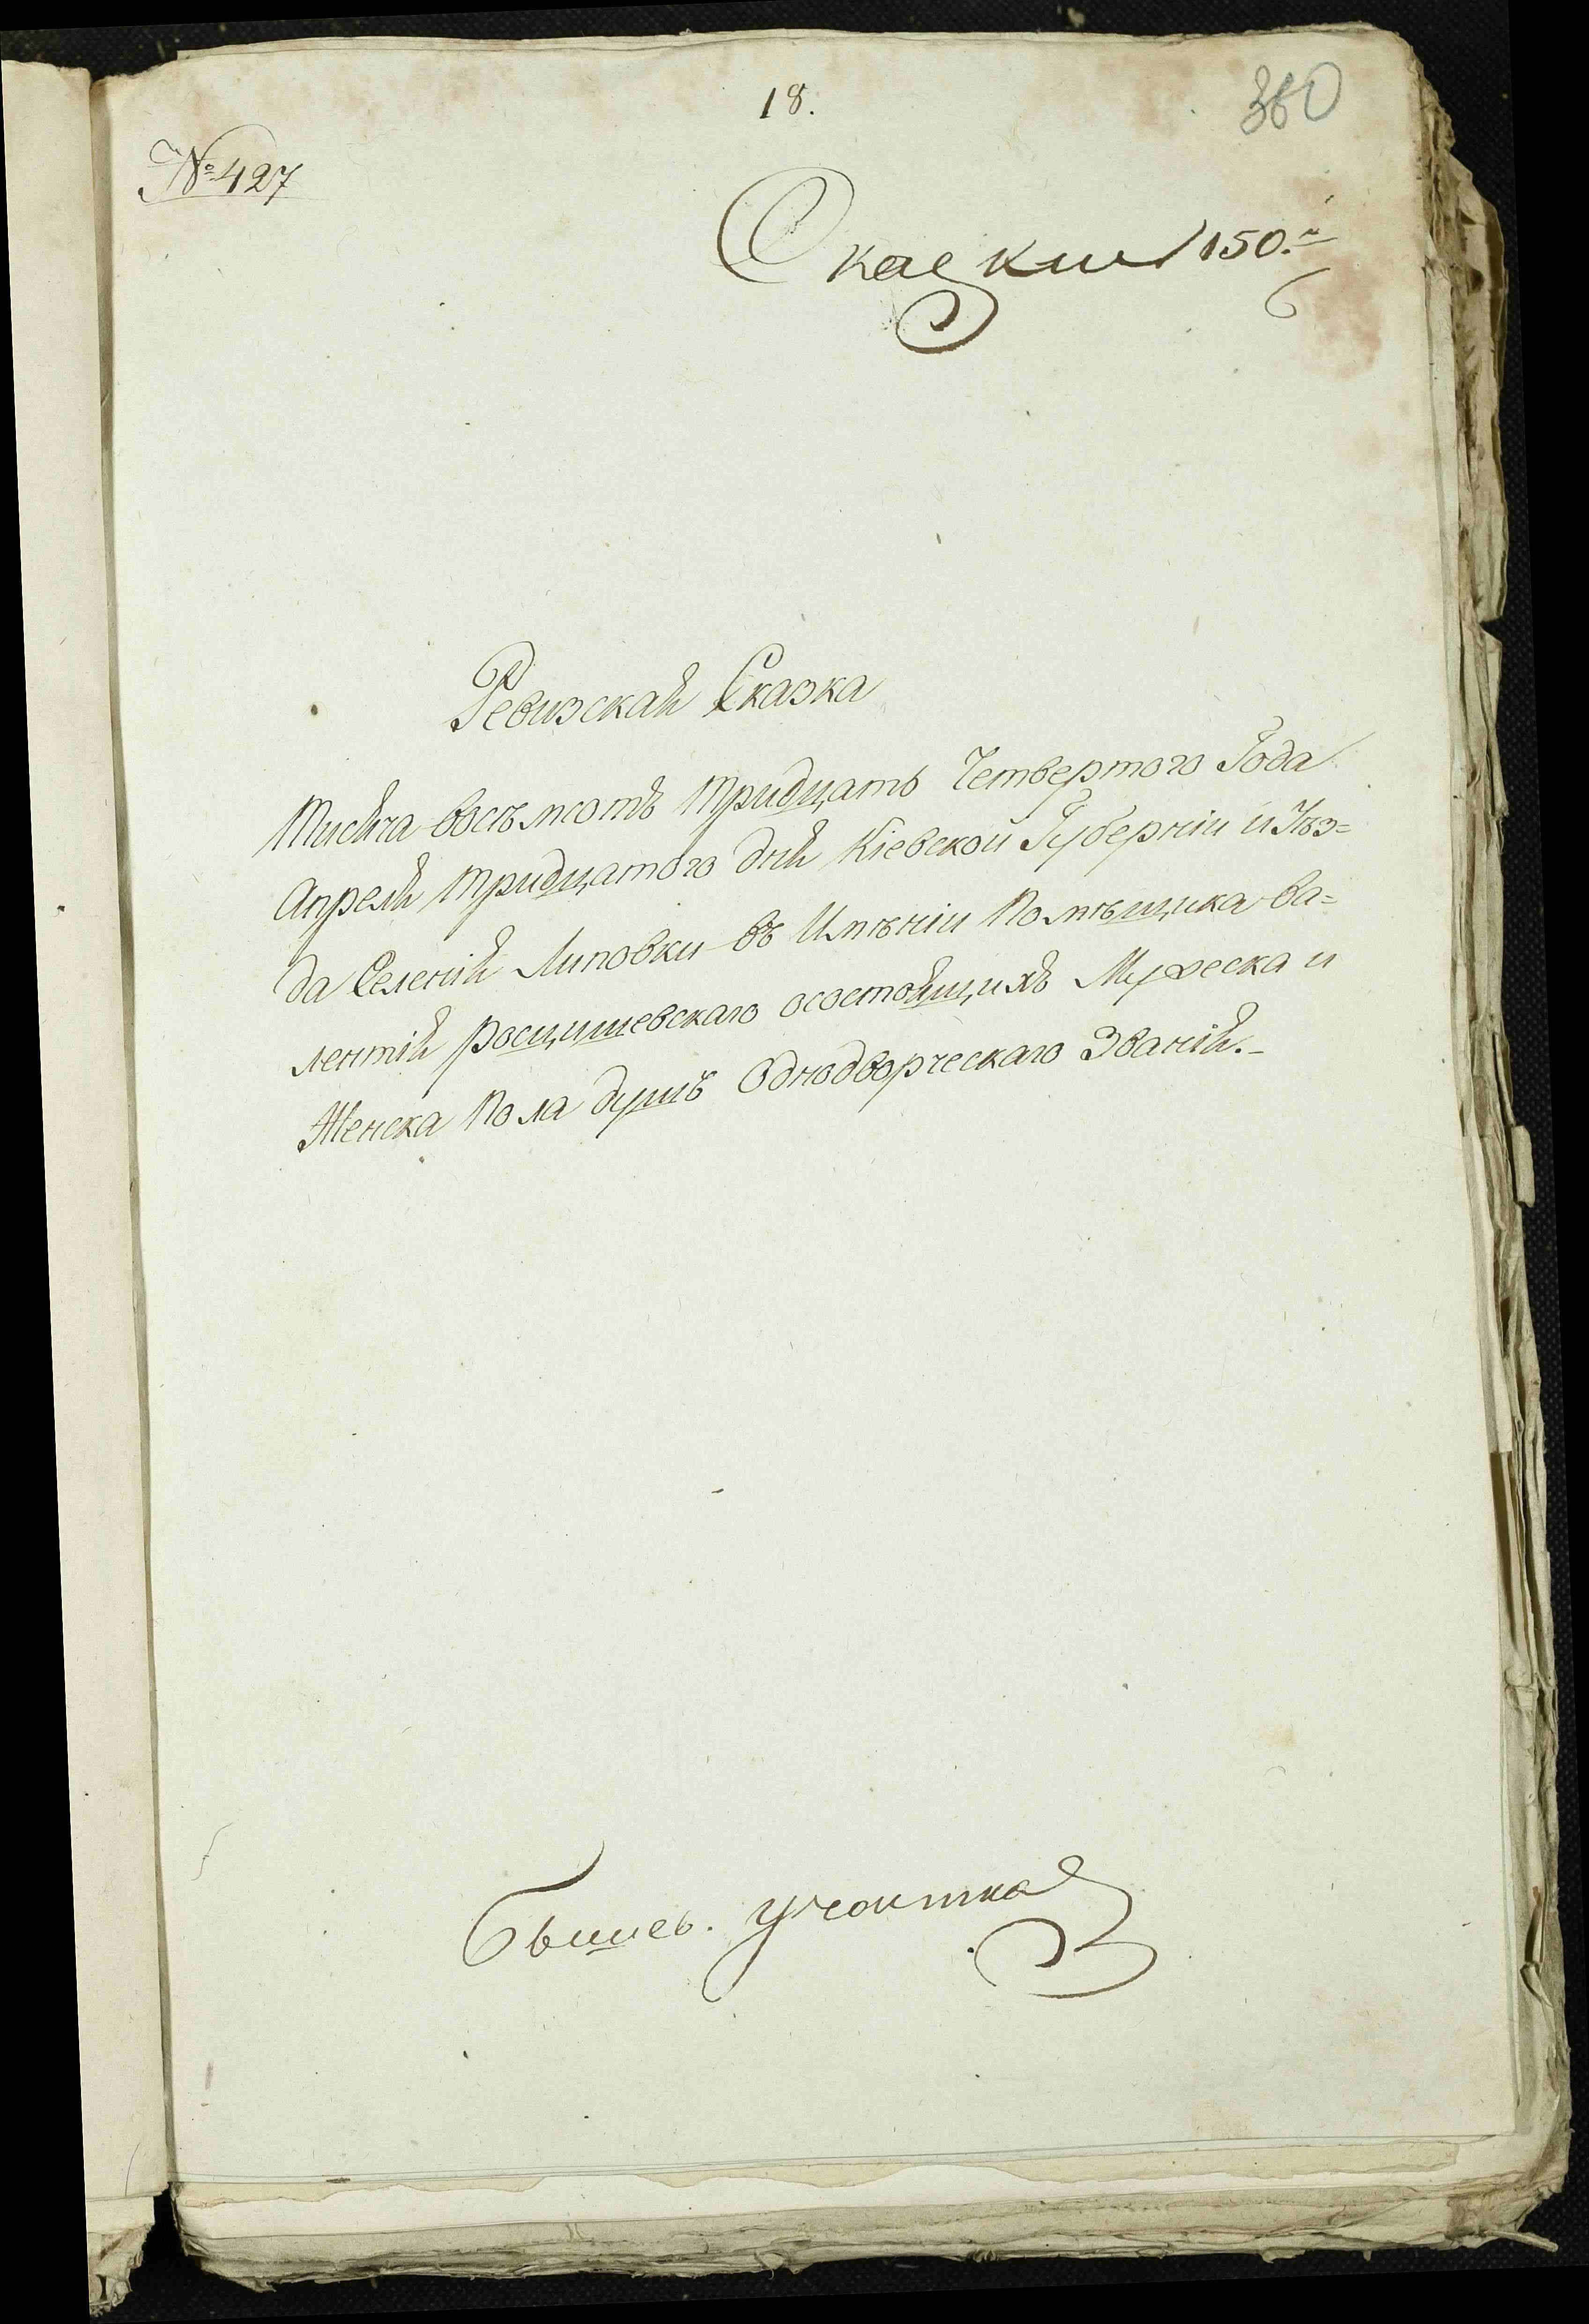 18.
360
№ 427
Сказки 150.й
Ревизская Сказка
Тисяча восъмсотъ тридцать Четвертого Года
Апреля тридцатого дня Кіевской Губерніи и Уѣз=
да Селенія Липовки въ Имѣніи Помѣщика Ва=
лентія Росцишевскаго осостоящихъ Мужеска и
Женска Пола душъ Однодворческаго Званія.-
Бышев. участка